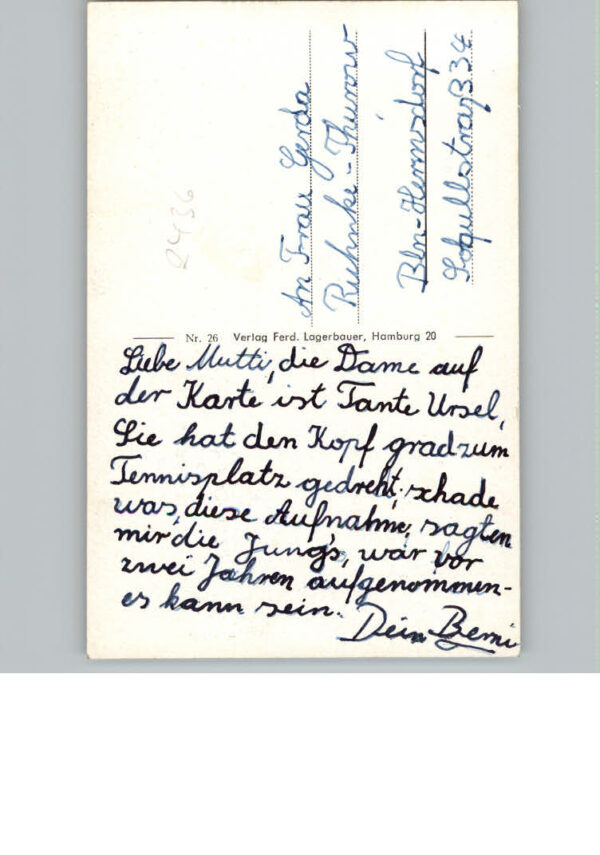 An Frau Gerda
Ruhnke-Thurow
Bln-Hermsdorf
34
2436
Nr. 26 Verlag Ferd. Lagerbauer, Hamburg 20
Liebe Mutti, die Dame auf
der Karte ist Tante Ursel,
Sie hat den Kopf grad zum
Tennisplatz gedreht, schade
was, diese Aufnahme, sagten
mir die Jung's, wär vor
zwei Jahren aufgenommen-
es kann sein.
Dein Berni